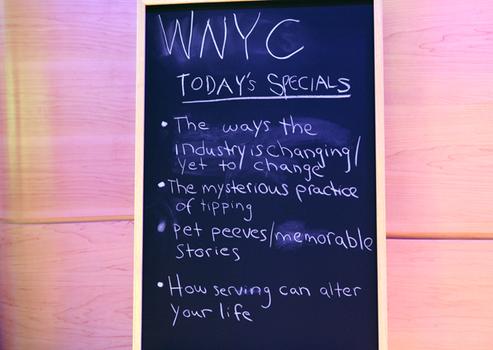 WNYC
TODAY'S SPECIALS
• The ways the
industry is changing/
yet to change
• The mysterious practice
of tipping
• pet peeves/memorable
stories
• How serving can alter
your life